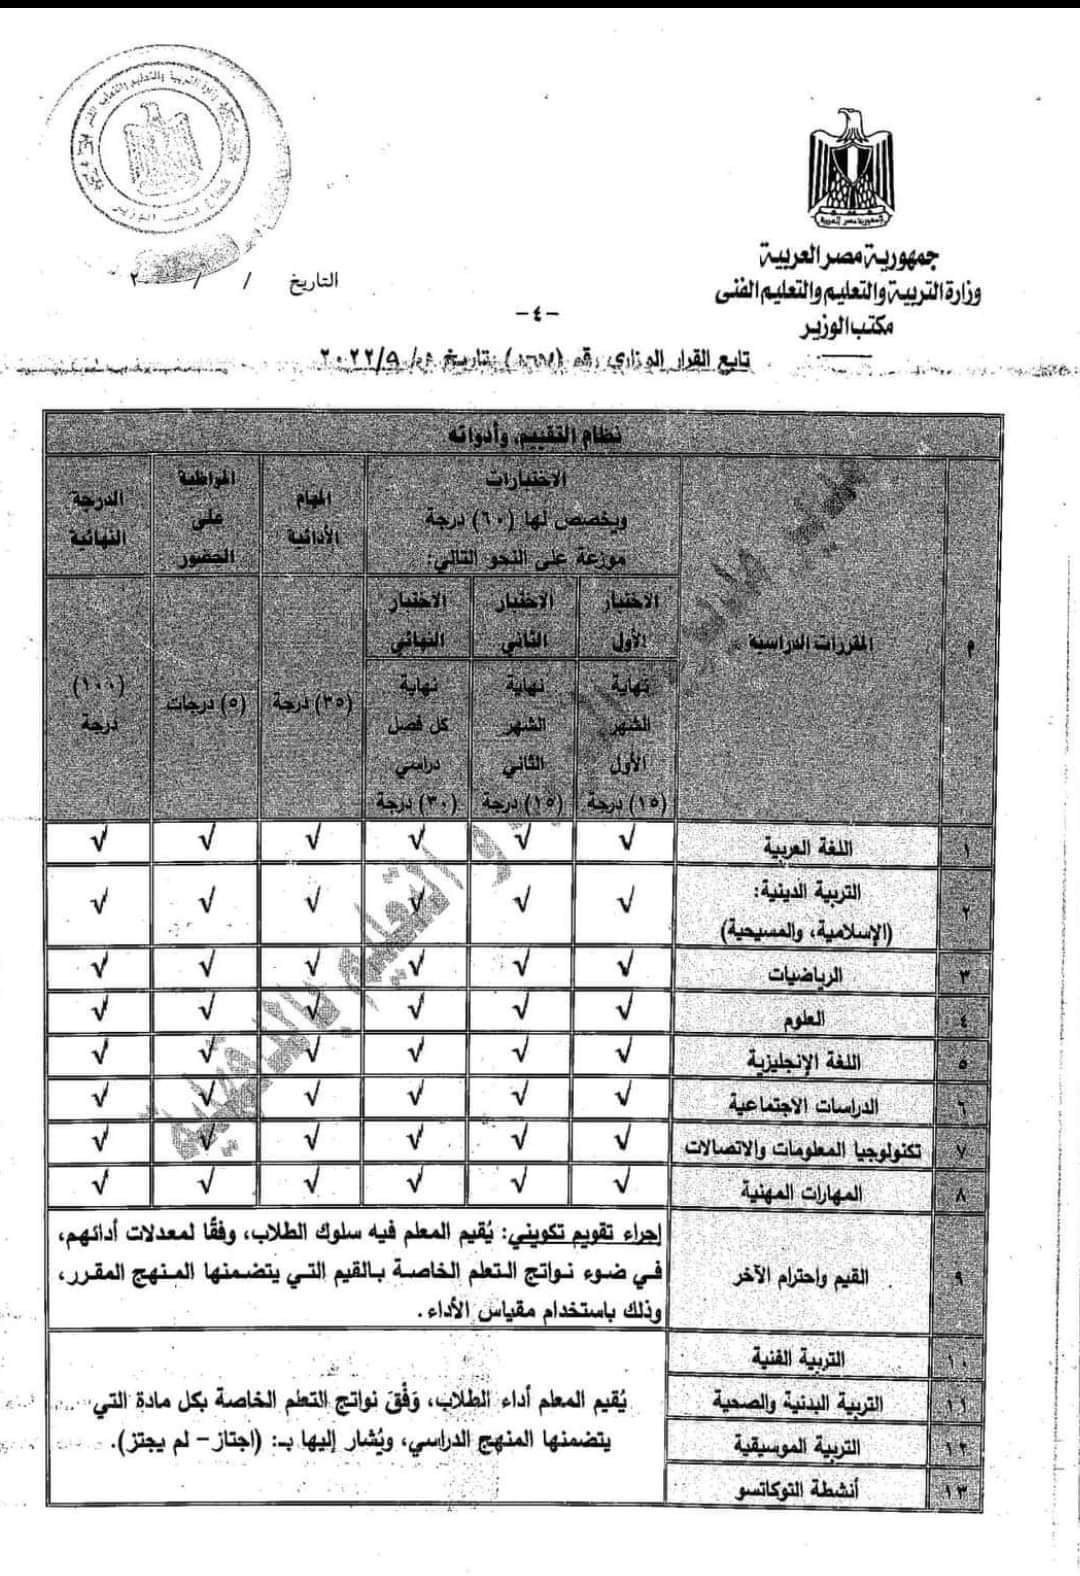 جمهورية مصر العربية
وزارة التربية والتعليم والتعليم الفنى
مكتب الوزير
التاريخ / / ٢٠
-٤-
تابع القرار الوزاري رقم ( ) بتاريخ / ٢٠٢٢/٩
نظام التقييم، وأدواته
م
المقررات الدراسية
الاختبارات
ويخصص لها (٦٠) درجة
موزعة على النحو التالي:
المهام
الأدائية
المواظبة
على
الحضور
الدرجة
النهائية
الاختبار
الأول
الاختبار
الثاني
الاختبار
النهائي
نهاية
الشهر
الأول
(١٥) درجة
نهاية
الشهر
الثاني
(١٥) درجة
نهاية
كل فصل
دراسي
(٣٠) درجة
(٣٥) درجة
(٥) درجات
(١٠٠)
درجة
١ اللغة العربية √ √ √ √ √ √
٢ التربية الدينية:
(الإسلامية، والمسيحية) √ √ √ √ √ √
٣ الرياضيات √ √ √ √ √ √
٤ العلوم √ √ √ √ √ √
٥ اللغة الإنجليزية √ √ √ √ √ √
٦ الدراسات الاجتماعية √ √ √ √ √ √
٧ تكنولوجيا المعلومات والاتصالات √ √ √ √ √ √
٨ المهارات المهنية √ √ √ √ √ √
٩ القيم واحترام الآخر
إجراء تقويم تكويني: يُقيم المعلم فيه سلوك الطلاب، وفقًا لمعدلات أدائهم،
في ضوء نواتج التعلم الخاصة بالقيم التي يتضمنها المنهج المقرر،
وذلك باستخدام مقياس الأداء.
١٠ التربية الفنية
١١ التربية البدنية والصحية
١٢ التربية الموسيقية
١٣ أنشطة التوكاتسو
يُقيم المعلم أداء الطلاب، وَفْقَ نواتج التعلم الخاصة بكل مادة التي
يتضمنها المنهج الدراسي، ويُشار إليها بـ: (اجتاز- لم يجتز).